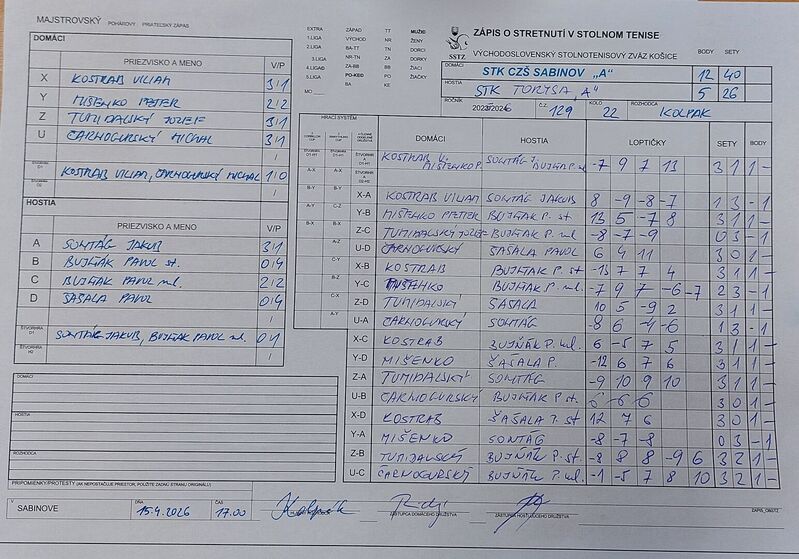 MAJSTROVSKÝ POHÁROVÝ PRIATEĽSKÝ ZÁPAS
DOMÁCI
PRIEZVISKO A MENO V/P
X KOSTRAB VILIAM 3/1
Y MIŠENKO PETER 2/2
Z TUMIDALSKÝ JOZEF 3/1
U ČARNOGURSKÝ MICHAL 3/1
KOSTRAB VILIAM, ČARNOGURSKÝ MICHAL 1/0
HOSTIA
PRIEZVISKO A MENO V/P
A SONTÁG JAKUB 3/1
B BUJŇÁK PAVOL st. 0/4
C BUJŇÁK PAVOL ml. 2/2
D ŠAŠALA PAVOL 0/4
SONTÁG JAKUB, BUJŇÁK PAVOL ml. 0/1
DOMÁCI
HOSTIA
ROZHODCA
PRIPOMIENKY/PROTESTY (AK NEPOSTAČUJE PRIESTOR, POUŽITE ZADNÚ STRANU ORIGINÁLU)
V SABINOVE DŇA 15.4.2026 ČAS 17.00
EXTRA ZÁPAD TT MUŽI
1.LIGA VÝCHOD NR ŽENY
2.LIGA BA-TT TN DORCI
3.LIGA NR-TN ZA DORKY
4.LIGA ZA-BB BB ŽIACI
5.LIGA PO-KE PO ŽIAČKY
MO BA KE
SSTZ
ZÁPIS O STRETNUTÍ V STOLNOM TENISE
VÝCHODOSLOVENSKÝ STOLNOTENISOVÝ ZVÄZ KOŠICE BODY SETY
DOMÁCI STK CZŠ SABINOV „A" 12 40
HOSTIA STK TORYSA „A" 5 26
ROČNÍK 2025/2026 Č.Z. 129 KOLO 22 ROZHODCA KOLPAK
HRACÍ SYSTÉM DOMÁCI HOSTIA LOPTIČKY SETY BODY
KOSTRAB V. MIŠENKO P. SONTÁG J. BUJŇÁK P. ml -7 9 7 13 3 1 1 -
X-A KOSTRAB VILIAM SONTÁG JAKUB 8 -9 -8 -7 1 3 - 1
Y-B MIŠENKO PETER BUJŇÁK P. st 13 5 -7 8 3 1 1 -
Z-C TUMIDALSKÝ JOZEF BUJŇÁK P. ml. -8 -7 -9 0 3 - 1
U-D ČARNOGURSKÝ ŠAŠALA PAVOL 6 4 11 3 0 1 -
X-B KOSTRAB BUJŇÁK P. st -13 7 7 4 3 1 1 -
Y-C MIŠENKO BUJŇÁK P. ml. -7 9 7 -6 -7 2 3 - 1
Z-D TUMIDALSKÝ ŠAŠALA 10 5 -9 2 3 1 1 -
U-A ČARNOGURSKÝ SONTÁG -8 6 -4 -6 1 3 - 1
X-C KOSTRAB BUJŇÁK P. ml. 6 -5 7 5 3 1 1 -
Y-D MIŠENKO ŠAŠALA P. -12 6 7 6 3 1 1 -
Z-A TUMIDALSKÝ SONTÁG -9 10 9 10 3 1 1 -
U-B ČARNOGURSKÝ BUJŇÁK P. st 6 6 3 0 1 -
X-D KOSTRAB ŠAŠALA 12 7 6 3 0 1 -
Y-A MIŠENKO SONTÁG -8 -7 -8 0 3 - 1
Z-B TUMIDALSKÝ BUJŇÁK P. st -8 8 8 -9 6 3 2 1 -
U-C ČARNOGURSKÝ BUJŇÁK P. ml -1 -5 7 8 10 3 2 1 -
Kolpak
ZÁSTUPCA DOMÁCEHO DRUŽSTVA ZÁSTUPCA HOSŤUJÚCEHO DRUŽSTVA